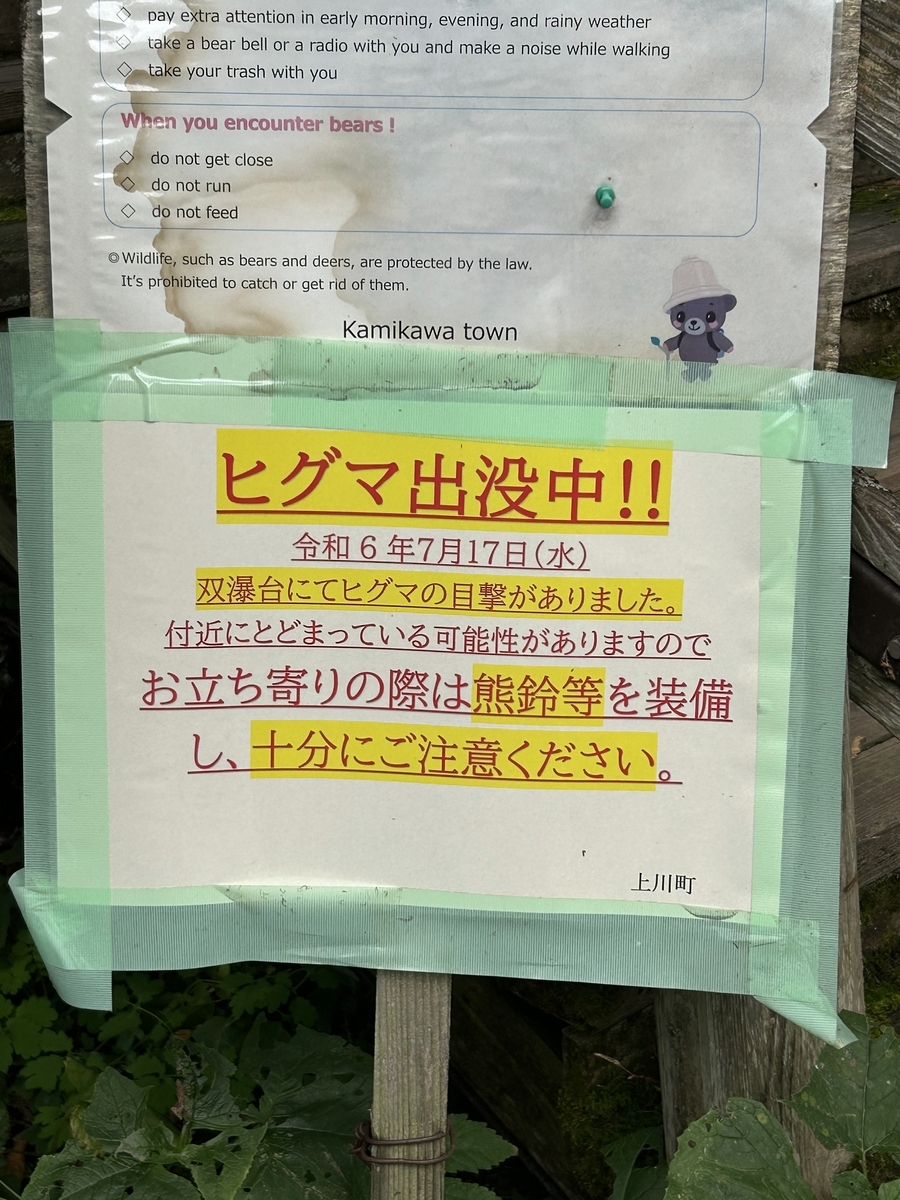 ◇ pay extra attention in early morning, evening, and rainy weather
◇ take a bear bell or a radio with you and make a noise while walking
◇ take your trash with you
When you encounter bears !
◇ do not get close
◇ do not run
◇ do not feed
◎Wildlife, such as bears and deers, are protected by the law.
It's prohibited to catch or get rid of them.
Kamikawa town
ヒグマ出没中!!
令和6年7月17日(水)
双瀑台にてヒグマの目撃がありました。
付近にとどまっている可能性がありますので
お立ち寄りの際は熊鈴等を装備
し、十分にご注意ください。
上川町